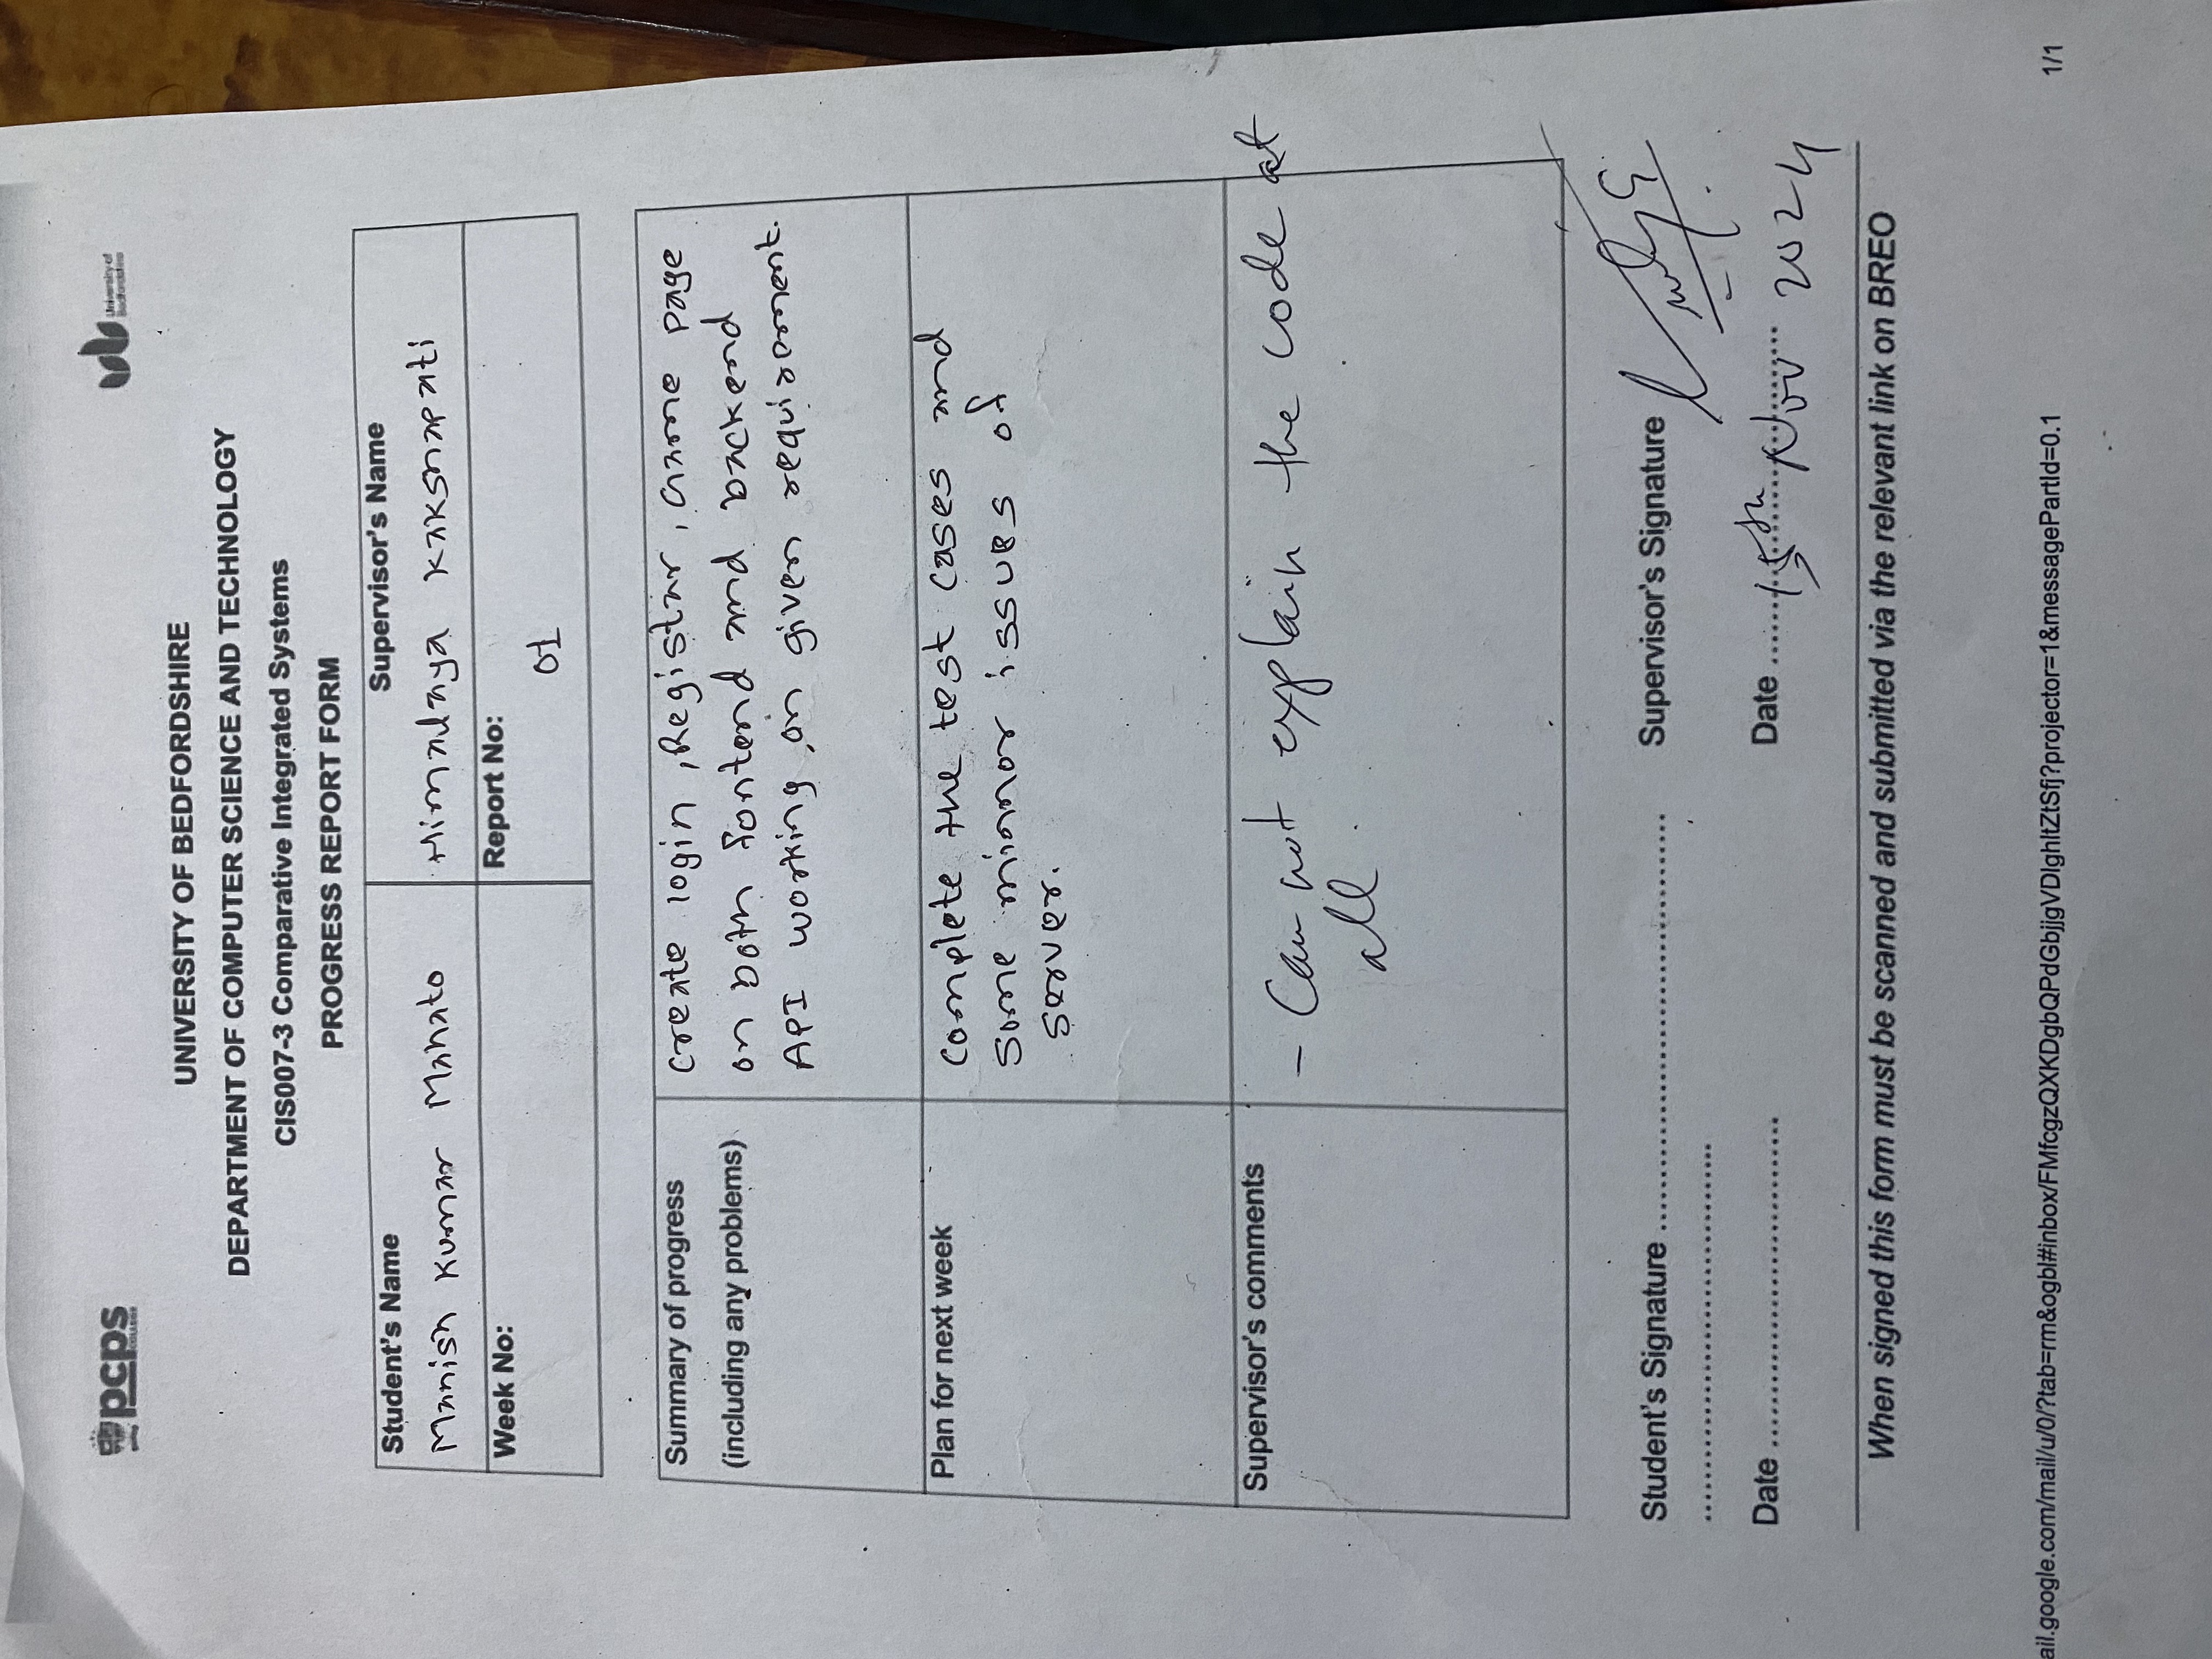 pcps
COLLEGE
University of
Bedfordshire
UNIVERSITY OF BEDFORDSHIRE
DEPARTMENT OF COMPUTER SCIENCE AND TECHNOLOGY
CIS007-3 Comparative Integrated Systems
PROGRESS REPORT FORM
Student's Name
Manish Kumar Mahato
Supervisor's Name
Himalaya Kakshapati
Week No:
Report No:
01
Summary of progress
(including any problems)
create login, Registar, Game page
on both fontend and backend
API working on given requirement.
Plan for next week
complete the test cases and
some minnor issues of
server.
Supervisor's comments
- Can not explain the code at
all.
Student's Signature ........................................
....................................
Supervisor's Signature
Date ...............................
Date ................................ 15th Nov 2024
When signed this form must be scanned and submitted via the relevant link on BREO
ail.google.com/mail/u/0/?tab=rm&ogbl#inbox/FMfcgzQXKDgbQPdGbjjgVDlghltZtSfj?projector=1&messagePartId=0.1
1/1